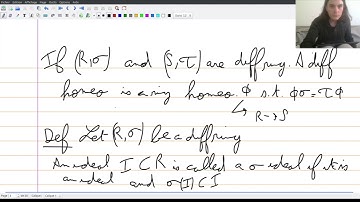 If (R,σ) and (S,τ) are diffring. A diff
homeo is a ring homeo. ϕ s.t. ϕσ=τϕ
R→S
Def Let (R,σ) be a diffring
An ideal I⊂R is called a σ ideal if it is
an ideal and σ(I)⊂I